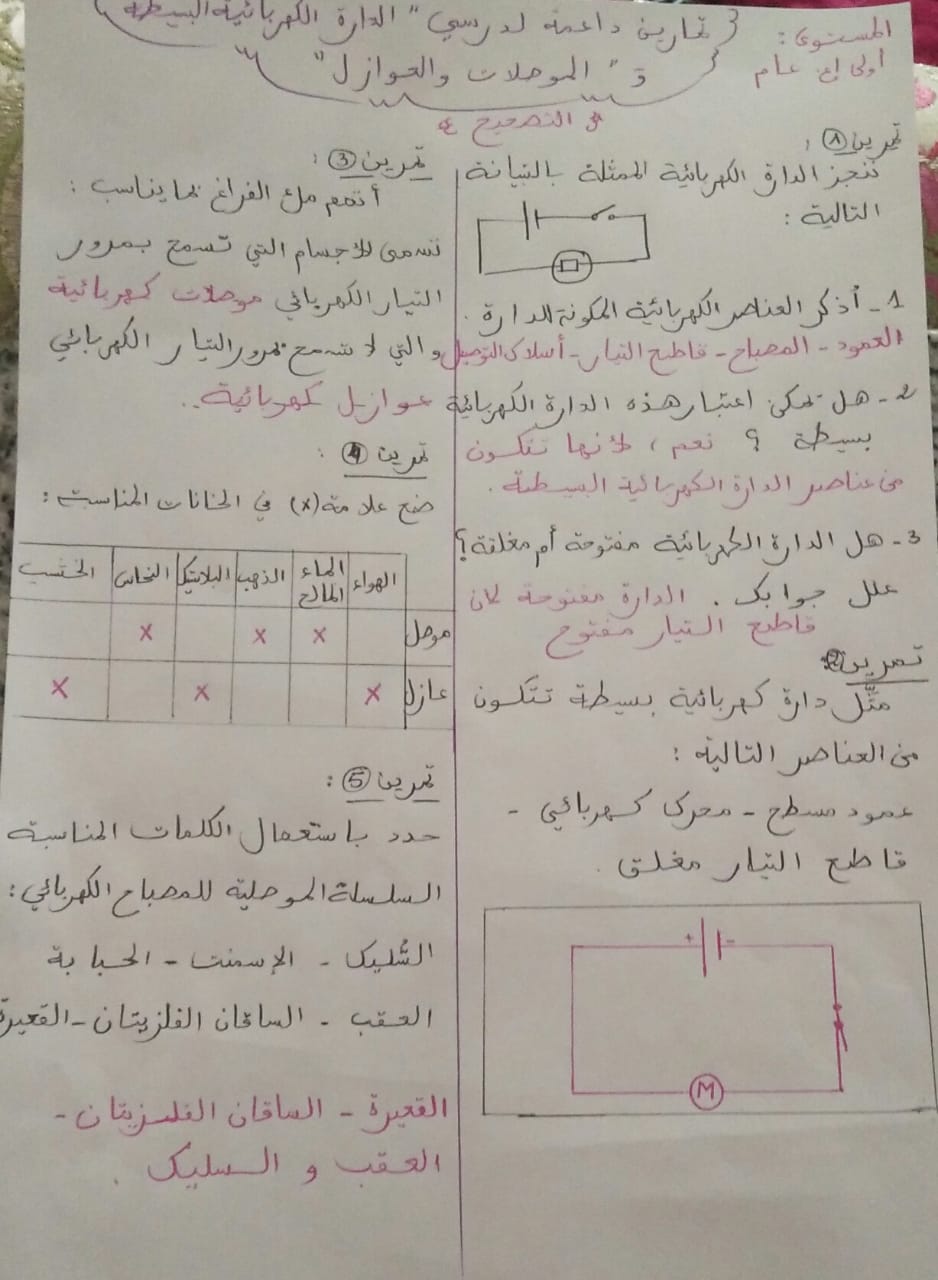 المستوى:
أولى إع عام
تمارين داعمة لدرسي "الدارة الكهربائية البسيطة
و "الموصلات والعوازل"
التصحيح
تمرين 1:
ننجز الدارة الكهربائية الممثلة بالتبيانة
التالية:
1- أذكر العناصر الكهربائية المكونة للدارة.
العمود - المصباح - قاطع التيار - أسلاك التوصيل
2- هل يمكن اعتبار هذه الدارة الكهربائية
بسيطة ؟ نعم، لأنها تتكون
من عناصر الدارة الكهربائية البسيطة.
3- هل الدارة الكهربائية مفتوحة أم مغلقة؟
علل جوابك. الدارة مفتوحة لأن
قاطع التيار مفتوح
تمرين 2:
مثّل دارة كهربائية بسيطة تتكون
من العناصر التالية:
عمود مسطح - محرك كهربائي -
قاطع التيار مغلق.
+ -
M
تمرين 3:
أتمم ملئ الفراغ بما يناسب:
تسمى الأجسام التي تسمح بمرور
التيار الكهربائي موصلات كهربائية
و التي لا تسمح بمرور التيار الكهربائي
عوازل كهربائية..
تمرين 4:
ضع علامة (x) في الخانات المناسبة:
الهواء الماء المالح الذهب البلاستيك النحاس الخشب
موصل x x x
عازل x x x
تمرين 5:
حدد باستعمال الكلمات المناسبة
السلسلة الموصلية للمصباح الكهربائي:
السُّليك - الإسمنت - الحبابة
العقب - الساقان الفلزيتان - القعيرة
القعيرة - الساقان الفلزيتان -
العقب و السليك.